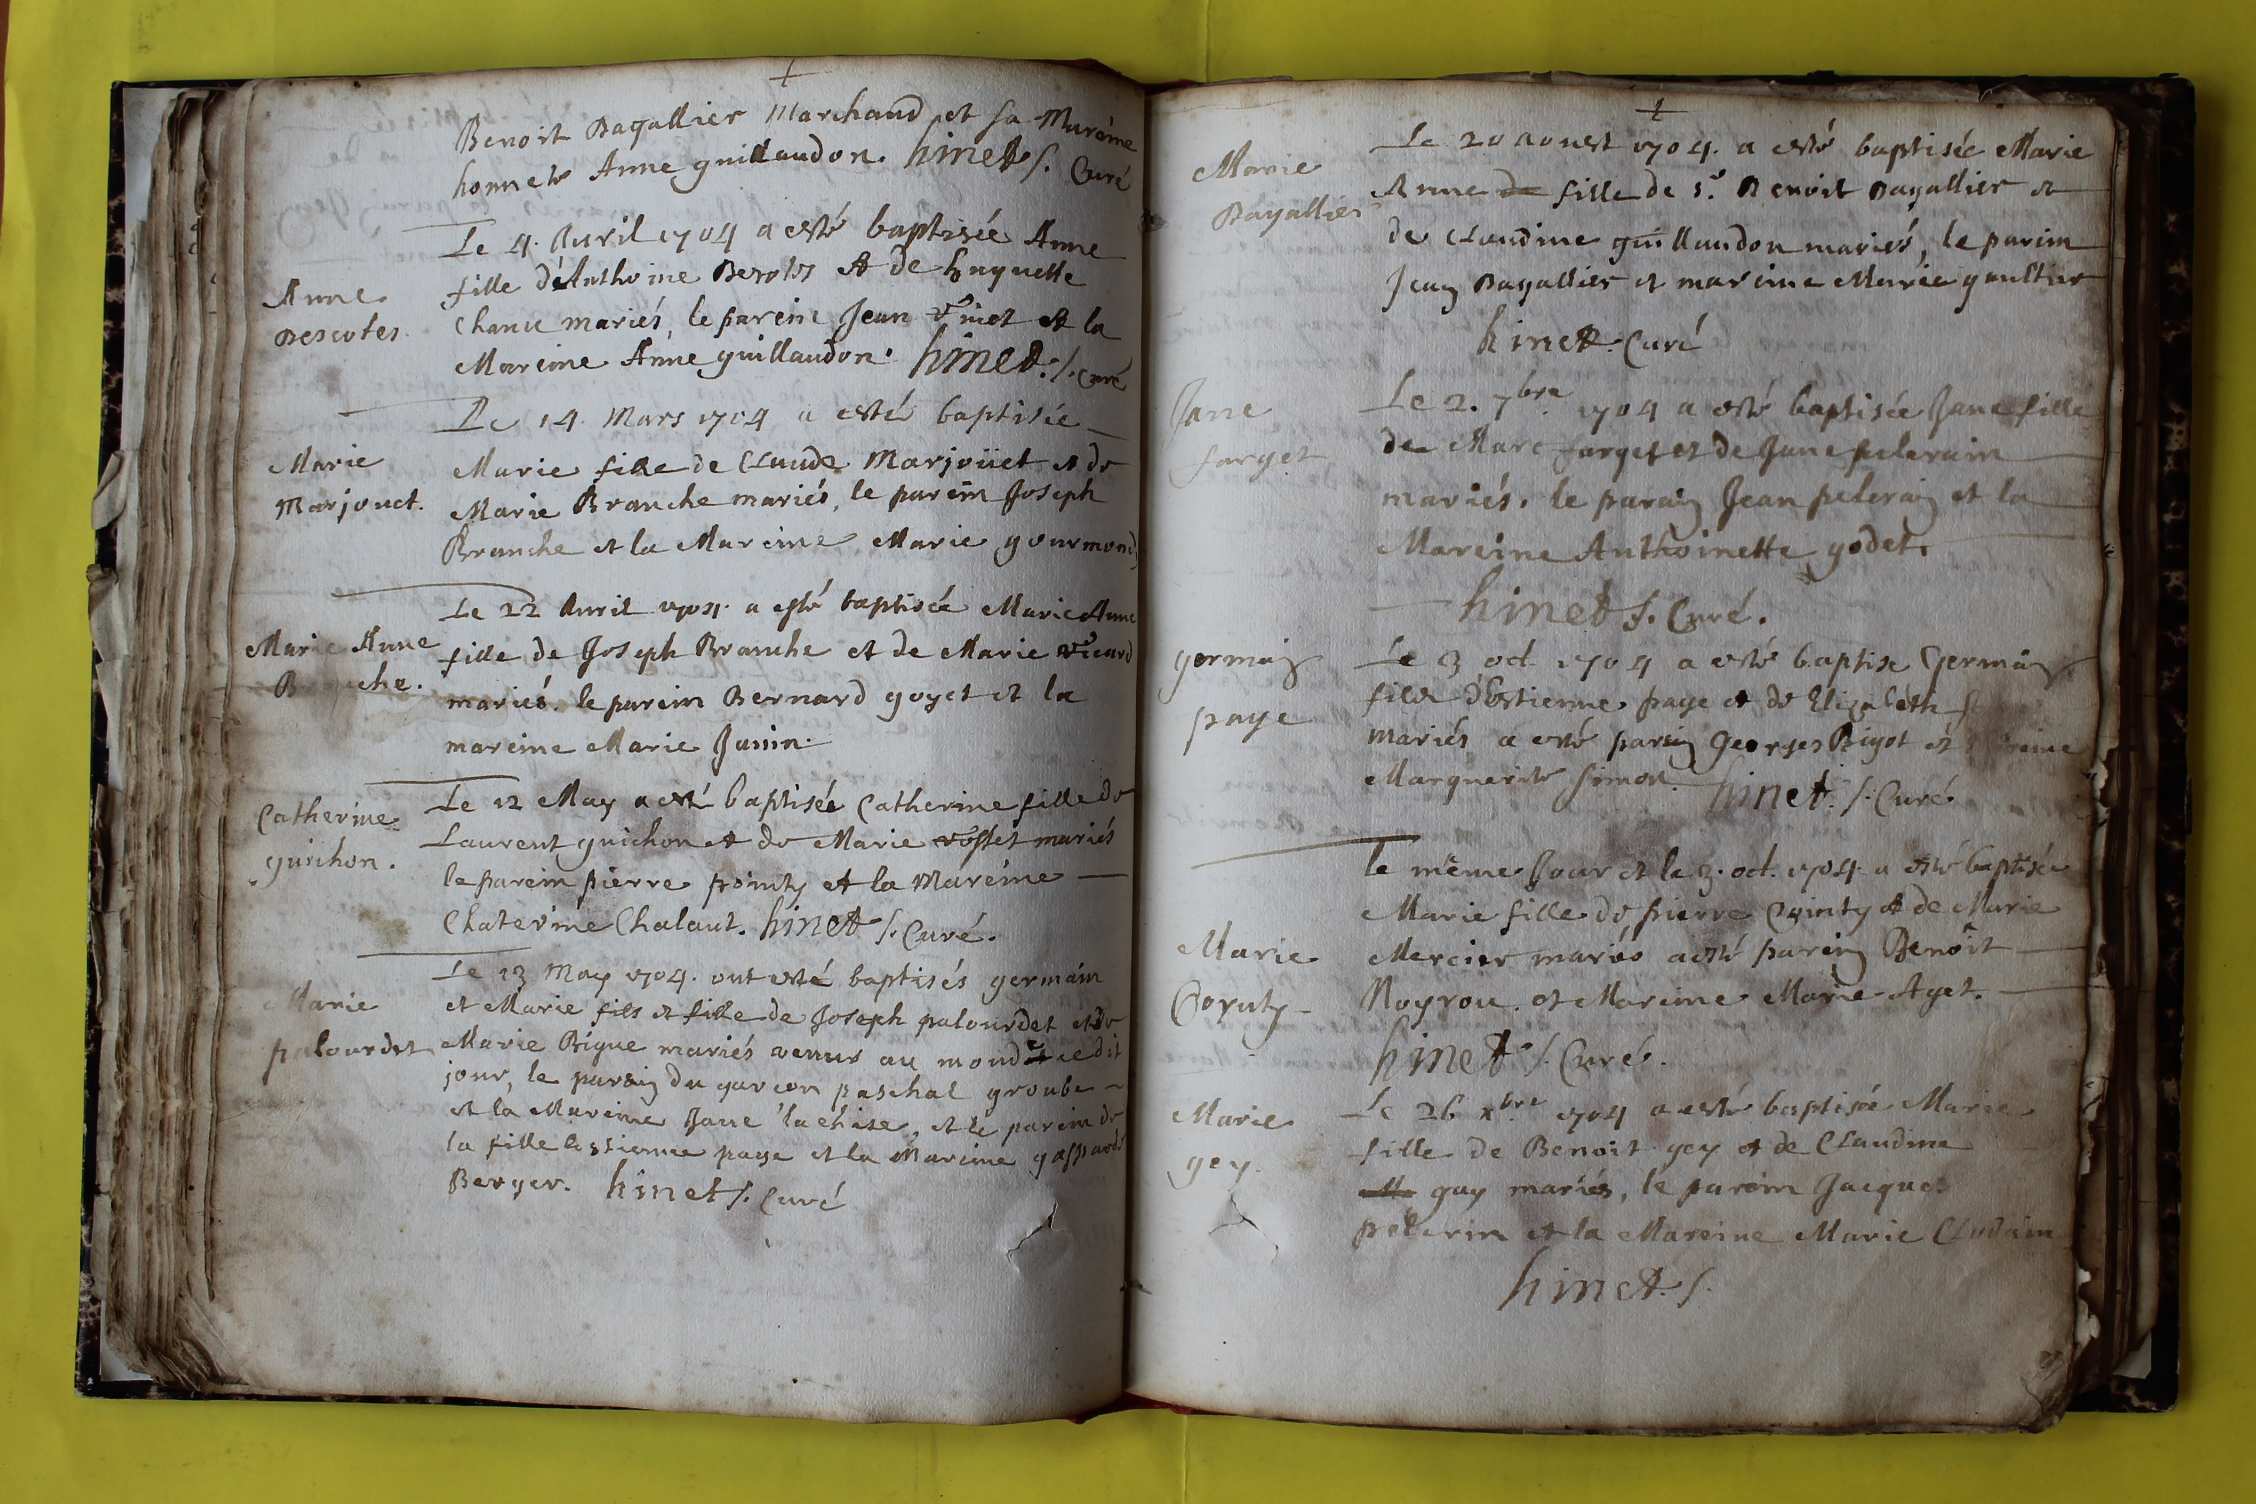 Benoit Dagallier Marchand et sa Mareine
honneste Anne guillaudon. hinet s. Curé
Le 4. Avril 1704 a esté baptisée Anne
Anne
Descotes.
fille d'Anthoine et de huguette
mariés, le parein Jean et la
Mareine Anne guillaudon. hinet. s. curé
Le 14 Mars 1704 a esté baptisée
Marie
Marjouet.
Marie fille de Claude Marjoüet et de
Marie Branche mariés, le parein Joseph
Branche et la Mareine Marie gourmond
Le 22 Avril 1704 a esté baptisée Marie Anne
Marie Anne
fille de Joseph Branche et de Marie Vicard
mariés. le parein Bernard goyet et la
mareine Marie
Le 12 May a esté baptisée Catherine fille de
Catherine
guichon.
Laurent guichon et de Marie mariés
le parein pierre pointy et la Mareine
Chaterine Chalant. hinet s. Curé.
Le 13 May 1704. ont esté baptisés germain
Marie
palourdet
et Marie fils et fille de Joseph palourdet et de
Marie Bigue mariés venus au monde ce dit
jour, le parein du garcon paschal groube
et la Mareine Jane la chise, et le parein de
la fille Estienne page et la Mareine gasparde
Berger. hinet s. Curé
Le 20 aoust 1704. a esté baptisée Marie
Marie
Dagallier
Anne fille de Sr. Benoit Dagallier et
de Claudine guillaudon mariés, le parein
Jean Dagallier et mareine Marie gaultier
hinet. Curé
Le 2. 7bre 1704 a esté baptisée Jane fille
Jane
farget
de Marc farget et de Jane pelerain
mariés. le parain Jean pelerain et la
Mareine Anthoinette godet.
hinet s. Curé.
Le 3 oct. 1704 a esté baptise Germain
germain
page
fils d'Estienne page et de Elizabeth
mariés a esté parein Georges Bigot et
Marguerite simon. hinet. s. Curé.
le même Jour et le 3. oct. 1704 a esté baptisée
Marie fille de pierre et de Marie
Marie
Mercier mariés a esté parein Benoît
Noyrou. et Mareine Marie Aget.
hinet s. Curé.
Le 26 xbre 1704 a esté baptisée Marie
Marie
gey.
fille de Benoit gey et de Claudine
guy mariés, le parein Jacques
pelerin et la Mareine Marie
hinet. s.